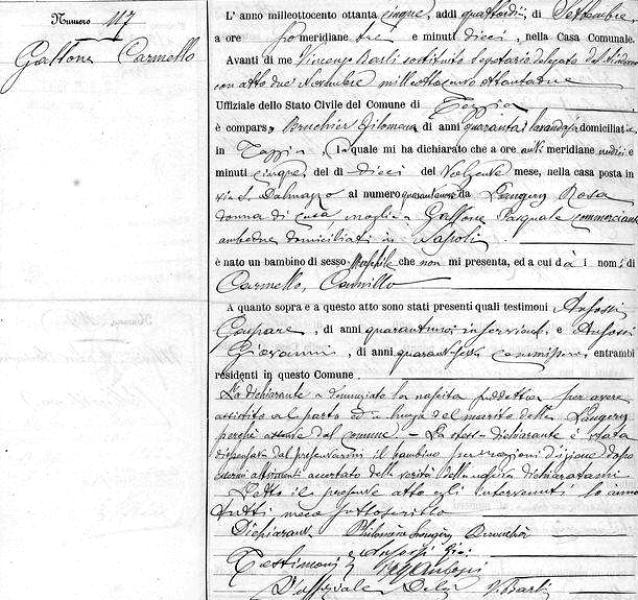 Numero 117
Gallone Carmello
L' anno milleottocento ottanta cinque, addì quattordici, di Settembre
a ore pomeridiane tre e minuti dieci, nella Casa Comunale.
Avanti di me Vincenzo Barli sostituito Segretario delegato dal Sindaco
con atto due Novembre milleottocento ottantatre
Uffiziale dello Stato Civile del Comune di Taggia
è compars, Bruchier Filomena di anni quaranta lavandaja domiciliata
in Taggia, la quale mi ha dichiarato che a ore anti meridiane undici e
minuti cinque, del dì dieci del volgente mese, nella casa posta in
via S. Dalmazzo al numero da Langery Rosa
donna di casa, moglie a Gallone Pasquale commerciante
ambedue domiciliati in Napoli
è nato un bambino di sesso maschile che non mi presenta, ed a cui dà i nomi di
Carmello, Camillo
A quanto sopra e a questo atto sono stati presenti quali testimoni Anfossi
Gaspare, di anni inserviente, e Anfossi
Giovanni, di anni entrambi
residenti in questo Comune.
La dichiarante a denunziato la nascita suddetta per avere
assistito al parto ed a luogo del marito della Langery
perchè assente dal comune. – La stessa dichiarante è stata
dispensata dal presentarmi il bambino per ragioni
accertato della verità della nascita
Letto il presente atto agli intervenuti lo anno
tutti meco sottoscritto
Dichiarante Philomène Bruchier
Testimoni Anfossi Gio.
V. Barli